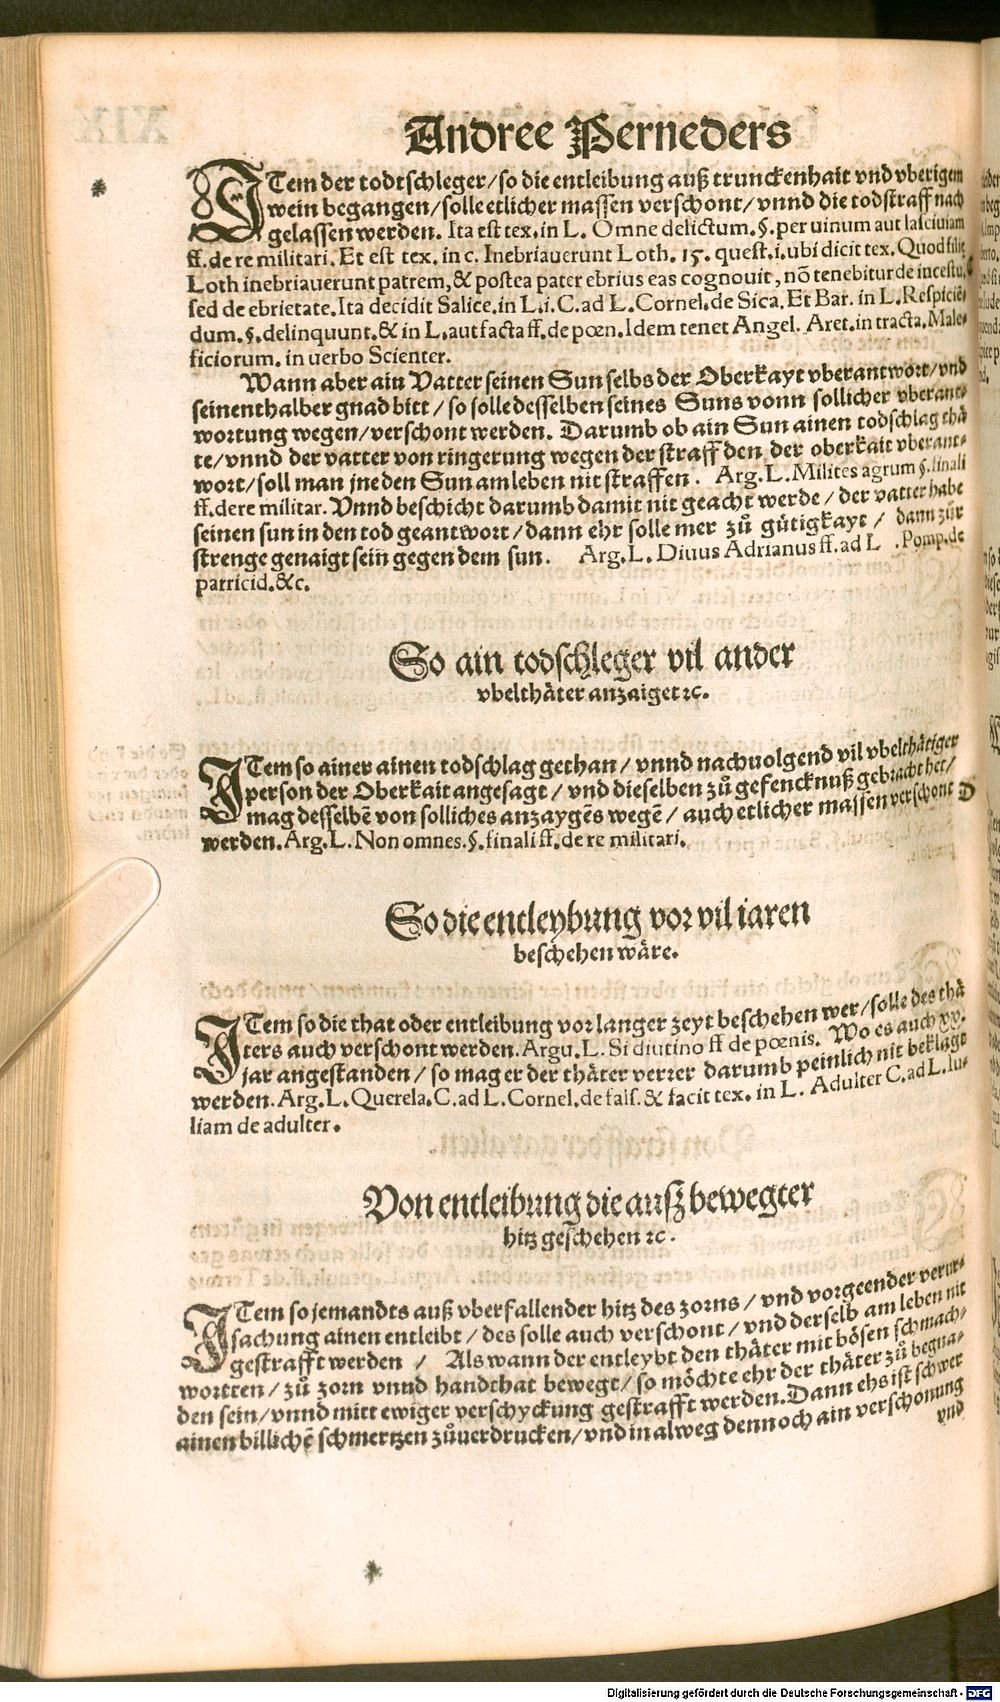 Andree Perneders
ITem der todtschleger/so die entleibung auß trunckenhait vnd vberigem
wein begangen/solle etlicher massen verschont/vnnd die todstraff nach
gelassen werden. Ita est tex. in L. Omne delictum. §. per uinum aut lasciuiam
ff. de re militari. Et est tex. in c. Inebriauerunt Loth. 15. quest. i. ubi dicit tex. Quod filię
Loth inebriauerunt patrem, & postea pater ebrius eas cognouit, nõ tenebitur de incestu,
sed de ebrietate. Ita decidit Salice. in L. i. C. ad L. Cornel. de Sica. Et Bar. in L. Respiciẽ-
dum. §. delinquunt. & in L. aut facta ff. de pœn. Idem tenet Angel. Aret. in tracta. Male-
ficiorum. in uerbo Scienter.
Wann aber ain Vatter seinen Sun selbs der Oberkayt vberantwort/vnd
seinenthalber gnad bitt/so solle desselben seines Suns vonn sollicher vberant-
wortung wegen/verschont werden. Darumb ob ain Sun ainen todschlag thä
te/vnnd der vatter von ringerung wegen der straff den, der oberkait vberant-
wort/soll man jne den Sun am leben nit straffen. Arg. L. Milites agrum §. finali
ff. de re militar. Vnnd beschicht darumb damit nit geacht werde/der vatter habe
seinen sun in den tod geantwort/dann ehr solle mer zů gütigkayt/dann zůr
strenge genaigt sein gegen dem sun. Arg. L. Diuus Adrianus ff. ad L. Pomp. de
parricid. &c.
So ain todschleger vil ander
vbelthäter anzaiget ꝛc.
ITem so ainer ainen todschlag gethan/vnnd nachuolgend vil vbelthätiger
person der Oberkait angesagt/vnd dieselben zů gefencknuß gebracht het/
mag desselbẽ von solliches anzaygẽs wegẽ/auch etlicher massen verschont D
werden. Arg. L. Non omnes. §. finali ff. de re militari.
So die entleybung vor vil iaren
beschehen wäre.
ITem so die that oder entleibung vor langer zeyt beschehen wer/solle des thä
ters auch verschont werden. Argu. L. Si diutino ff de pœnis. Wo es auch xx.
jar angestanden/so mag er der thäter verrer darumb peinlich nit beklagt
werden. Arg. L. Querela. C. ad L. Cornel. de fals. & facit tex. in L. Adulter C. ad L. Iu-
liam de adulter.
Von entleibung die auß bewegter
hitz geschehen ꝛc.
ITem so jemandts auß vberfallender hitz des zorns/vnd vorgeender verur-
sachung ainen entleibt/des solle auch verschont/vnd derselb am leben nit
gestrafft werden/Als wann der entleybt den thäter mit bösen schmach-
wortten/zů zorn vnnd handthat bewegt/so möchte ehr der thäter zů begna-
den sein/vnnd mitt ewiger verschyckung gestrafft werden. Dann ehs ist schwer
ainen billichẽ schmertzen zůuerdrucken/vnd in alweg dennoch ain verschonung
vnd
Digitalisierung gefördert durch die Deutsche Forschungsgemeinschaft - DFG